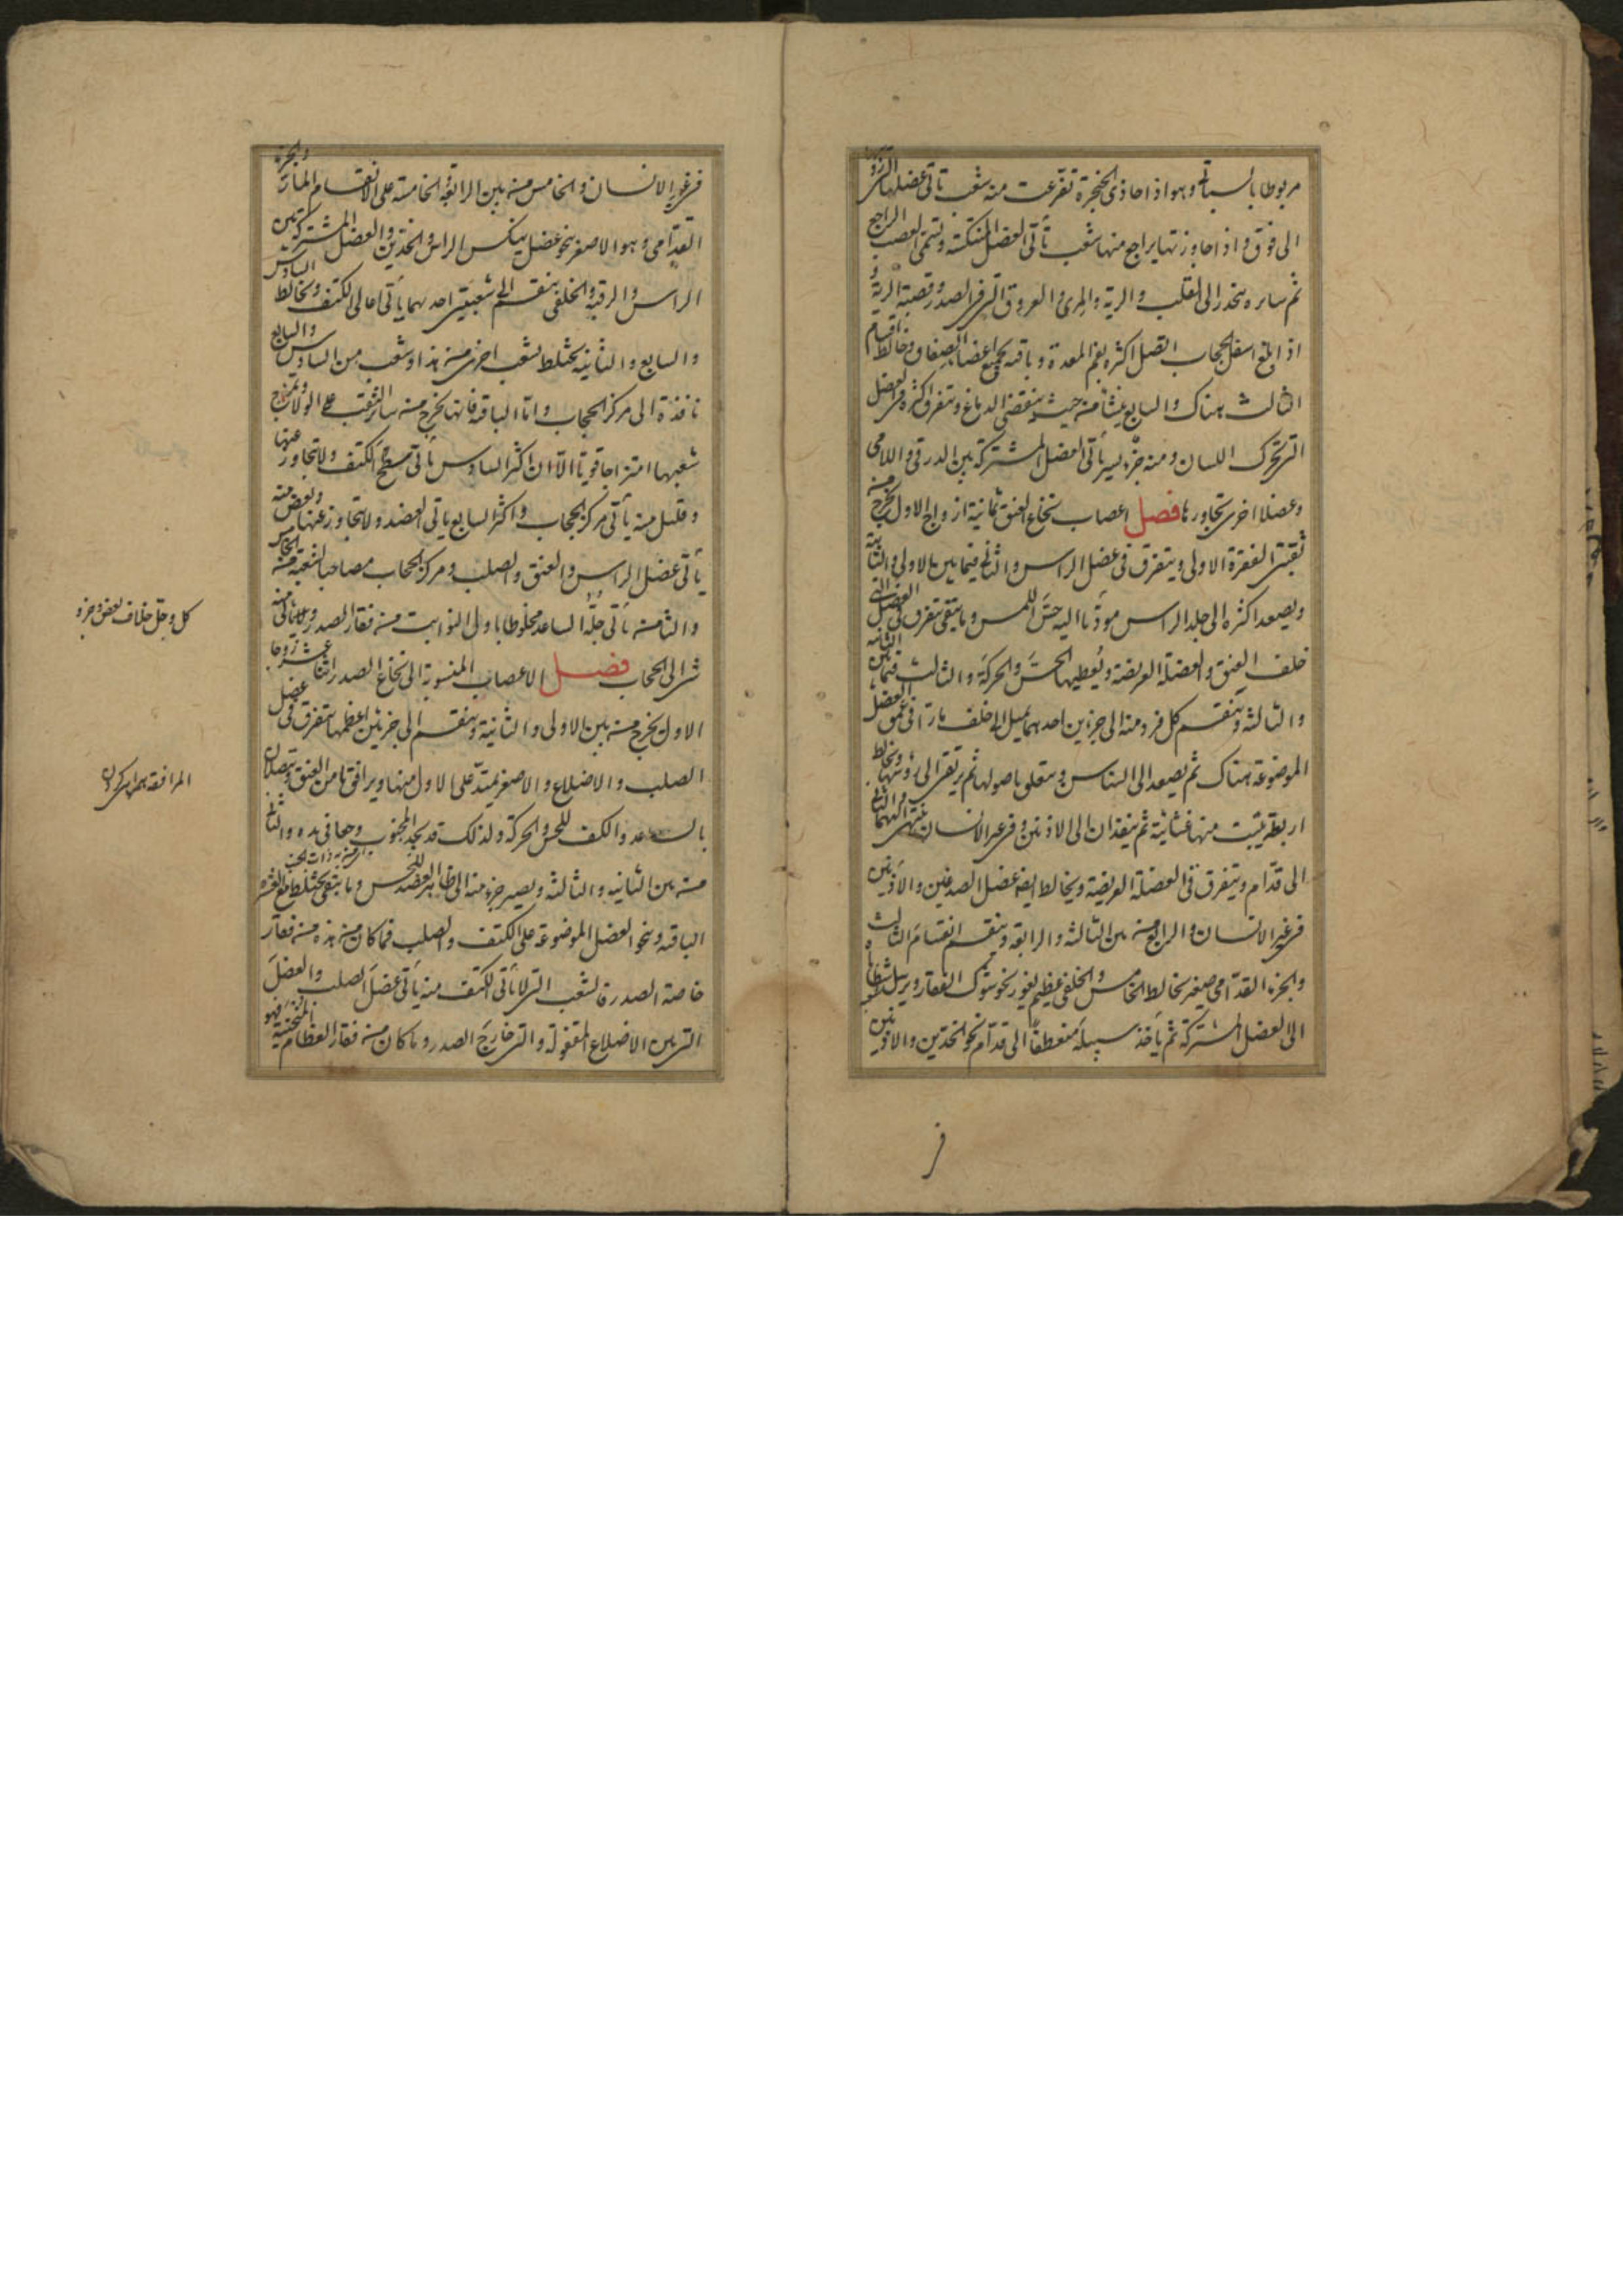 مربوطا بالسباتي وهو اذا حاذى الحنجرة تفرعت منه شعب تاتى عضلها التى رؤسها
الى فوق واذا جاوزتها يراجع منها شعب تأتى العضل المنتكسة وتسمى العصب الراجع
ثم سايره ينحدر الى القلب والرية والمرئ والعروق التى فى الصدر وقصبة الرية و
اذا بلغ اسفل الحجاب اتصل اكثره بفم المعدة وباقيه بجميع اعضاء الصفاق وخالط اقسام
الثالث هناك والسابع ينشأ منه حيث ينقضى الدماغ ويتفرق اكثره فى العضل
التى تحرك اللسان ومنه جزء يسير يأتى العضل المشتركة بين الدرقى واللامى
وعضلا اخرى تجاورها فصل اعصاب نخاع العنق ثمانية ازواج الاول يخرج من
ثقبتى الفقرة الاولى ويتفرق فى عضل الراس والثانى فيما بين الاولى والثانية
ويصعد اكثره الى جلد الراس مودّيا اليه حسّ اللمس وما يبقى يتفرق فى العضل التى
خلف العنق والعضلة العريضة ويُعطيها الحسَّ والحركة والثالث فيما بين الثانية
والثالثة وينقسم كل فرد منه الى جزءين احدهما يميل الى خلف مارّا فى عمق العضل
الموضوعة هناك ثم يصعد الى السناسن ويتعلق باصولها ثم يرتقى الى رؤسها ويخالط
اربطة ينبت منها غشائية ثم ينفذان الى الاذنين وفى غير الانسان ينتهى اليهما والثانى
الى قدّام ويتفرق فى العضلة العريضة ويخالط ايضا عضل الصدغين والاذنين
فى غير الانسان والرابع منه بين الثالثة والرابعة وينقسم انقسام الثالث
والجزء القدّامى صغير يخالط الخامس والخلفى عظيم يغور نحو شوك الفقار ويرسل شظايا
الى العضل المشتركة ثم يأخذ سبيله منعطفا الى قدّام نحو الخدّين والاذنين
فى
فى غير الانسان والخامس منه بين الرابعة والخامسة على الانقسام المار والجزء
القدّامى وهو الاصغر نحو عضل ينكس الراس والخدّين والعضل المشتركة بين
الراس والرقبة والخلفى ينقسم الى شعبتين احدهما يأتى اعالى الكتف ويخالط السادس
والسابع والثانية يختلط بشعب اخرى منه هذا وشعب من السادس والسابع
نافذة الى مركز الحجاب واما الباقية فانها يخرج من سائر الثقب على الولاء ويمتزج
شعبها امتزاجا قويا الا ان اكثر السادس يأتى سطح الكتف ولا يتجاوز عنها
وقليل منه يأتى مركز الحجاب واكثر السابع يأتى العضد ولا يتجاوز عنها وبعض منه
يأتى عضل الراس والعنق والصلب ومركز الحجاب مصاحبا لشعبة من الخامس
والثامنة يأتى جلّه الساعد مخلوطا باولى النوابت من فقار الصدر
الى الحجاب فصل الاعصاب المنسوبة الى نخاع الصدر اثنا عشر زوجا
الاول يخرج منه بين الاولى والثانية وينقسم الى جزئين اعظمها يتفرق فى عضل
الصلب والاضلاع والاصغر يمتدّ على الاول منها ويرافق ثامن العنق ويتصلان
بالساعد والكف للحس والحركة ولذلك قد يجد المجنوب وجعا فى يده والثانى
اى من به ذات الجنب
منه بين الثانيه والثالثة ويصير جزء منه الى ظاهر العضد للحس وما يبقى يختلط مع العشرة
الباقية ونحو العضل الموضوعة على الكتف والصلب فما كان منه هذه من فقار
خاصة الصدر فالشعب التى لا تأتى الكتف منه يأتى عضلَ الصلب والعضلَ
التى بين الاضلاع المقفولة والتى خارج الصدر وما كان من فقار العظام المنحنية فهو
كل وجلّ خلاف بعض وجزو
المرافقة همراهى كردن